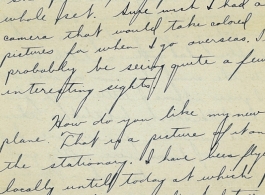 whole set. Sure wish I had a
camera that would take colored
pictures for when I go overseas. I
probably be seeing quite a few
interesting sights.
How do you like my new
plane. That is a picture of it on
the stationary. I have been flying
locally until today at which